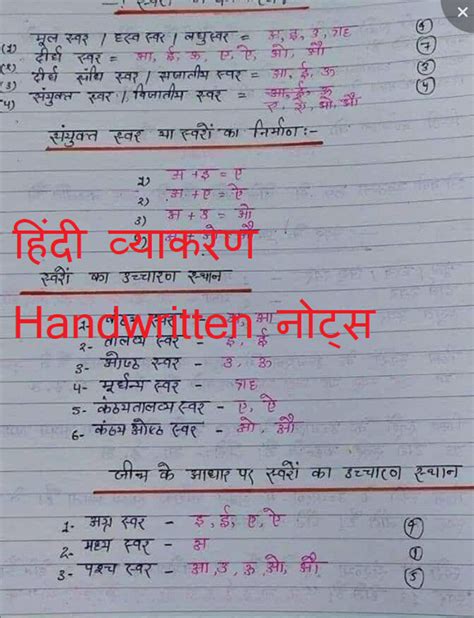 (1) मूल स्वर / ह्रस्व स्वर / लघु स्वर = अ, इ, उ, ऋ (4)
(2) दीर्घ स्वर = आ, ई, ऊ, ए, ऐ, ओ, औ (7)
(3) दीर्घ संधि स्वर / सजातीय स्वर = आ, ई, ऊ (3)
(4) संयुक्त स्वर / विजातीय स्वर = ए, ऐ, ओ, औ (4)
संयुक्त स्वर या स्वरों का निर्माण:-
1) अ + इ = ए
2) अ + ए = ऐ
3) अ + उ = ओ
हिंदी व्याकरण
स्वरों का उच्चारण स्थान
Handwritten नोट्स
2- तालव्य स्वर - इ, ई
3- ओष्ठ स्वर - उ, ऊ
4- मूर्धन्य स्वर - ऋ
5- कंठ्यतालव्य स्वर - ए, ऐ
6- कंठ्य ओष्ठ स्वर - ओ, औ
जीभ के आधार पर स्वरों का उच्चारण स्थान
1- अग्र स्वर - इ, ई, ए, ऐ (4)
2- मध्य स्वर - अ (1)
3- पश्च स्वर - आ, उ, ऊ, ओ, औ (5)